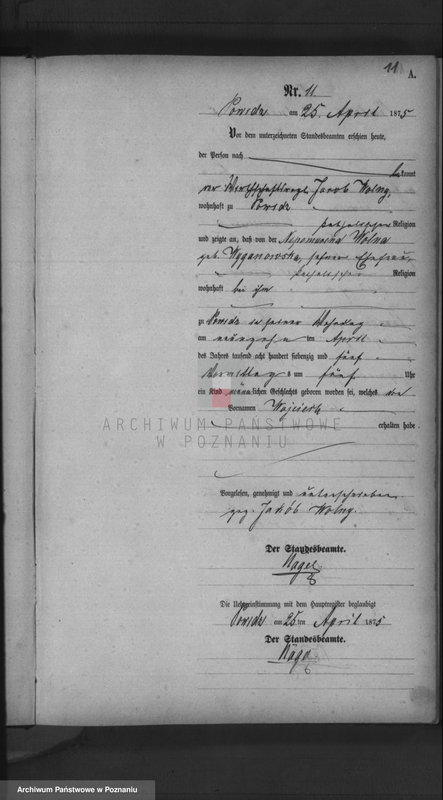 11
A.
Nr. 11
Powidz am 25. April 1875
Vor dem unterzeichneten Standesbeamten erschien heute,
der Person nach
bekannt
der Jacob Wolny,
wohnhaft zu Powidz
katholischer Religion
und zeigte an, daß von der Nepomucena Wolna
geb. Wyganowska, seiner Ehefrau,
katholischer Religion
wohnhaft bei ihm
zu Powidz in seiner Wohnung
am neunzehn ten April
des Jahres tausend acht hundert siebenzig und fünf
Vormittags um fünf Uhr
ein Kind männlichen Geschlechts geboren worden sei, welches die
Vornamen Wojciech
erhalten habe.
ARCHIWUM PAŃSTWOWE
W POZNANIU
Vorgelesen, genehmigt und unterschrieben
gez. Jakób Wolny.
Der Standesbeamte.
Nagel
Die Uebereinstimmung mit dem Hauptregister beglaubigt
Powidz am 25.ten April 1875
Der Standesbeamte.
Archiwum Państwowe w Poznaniu